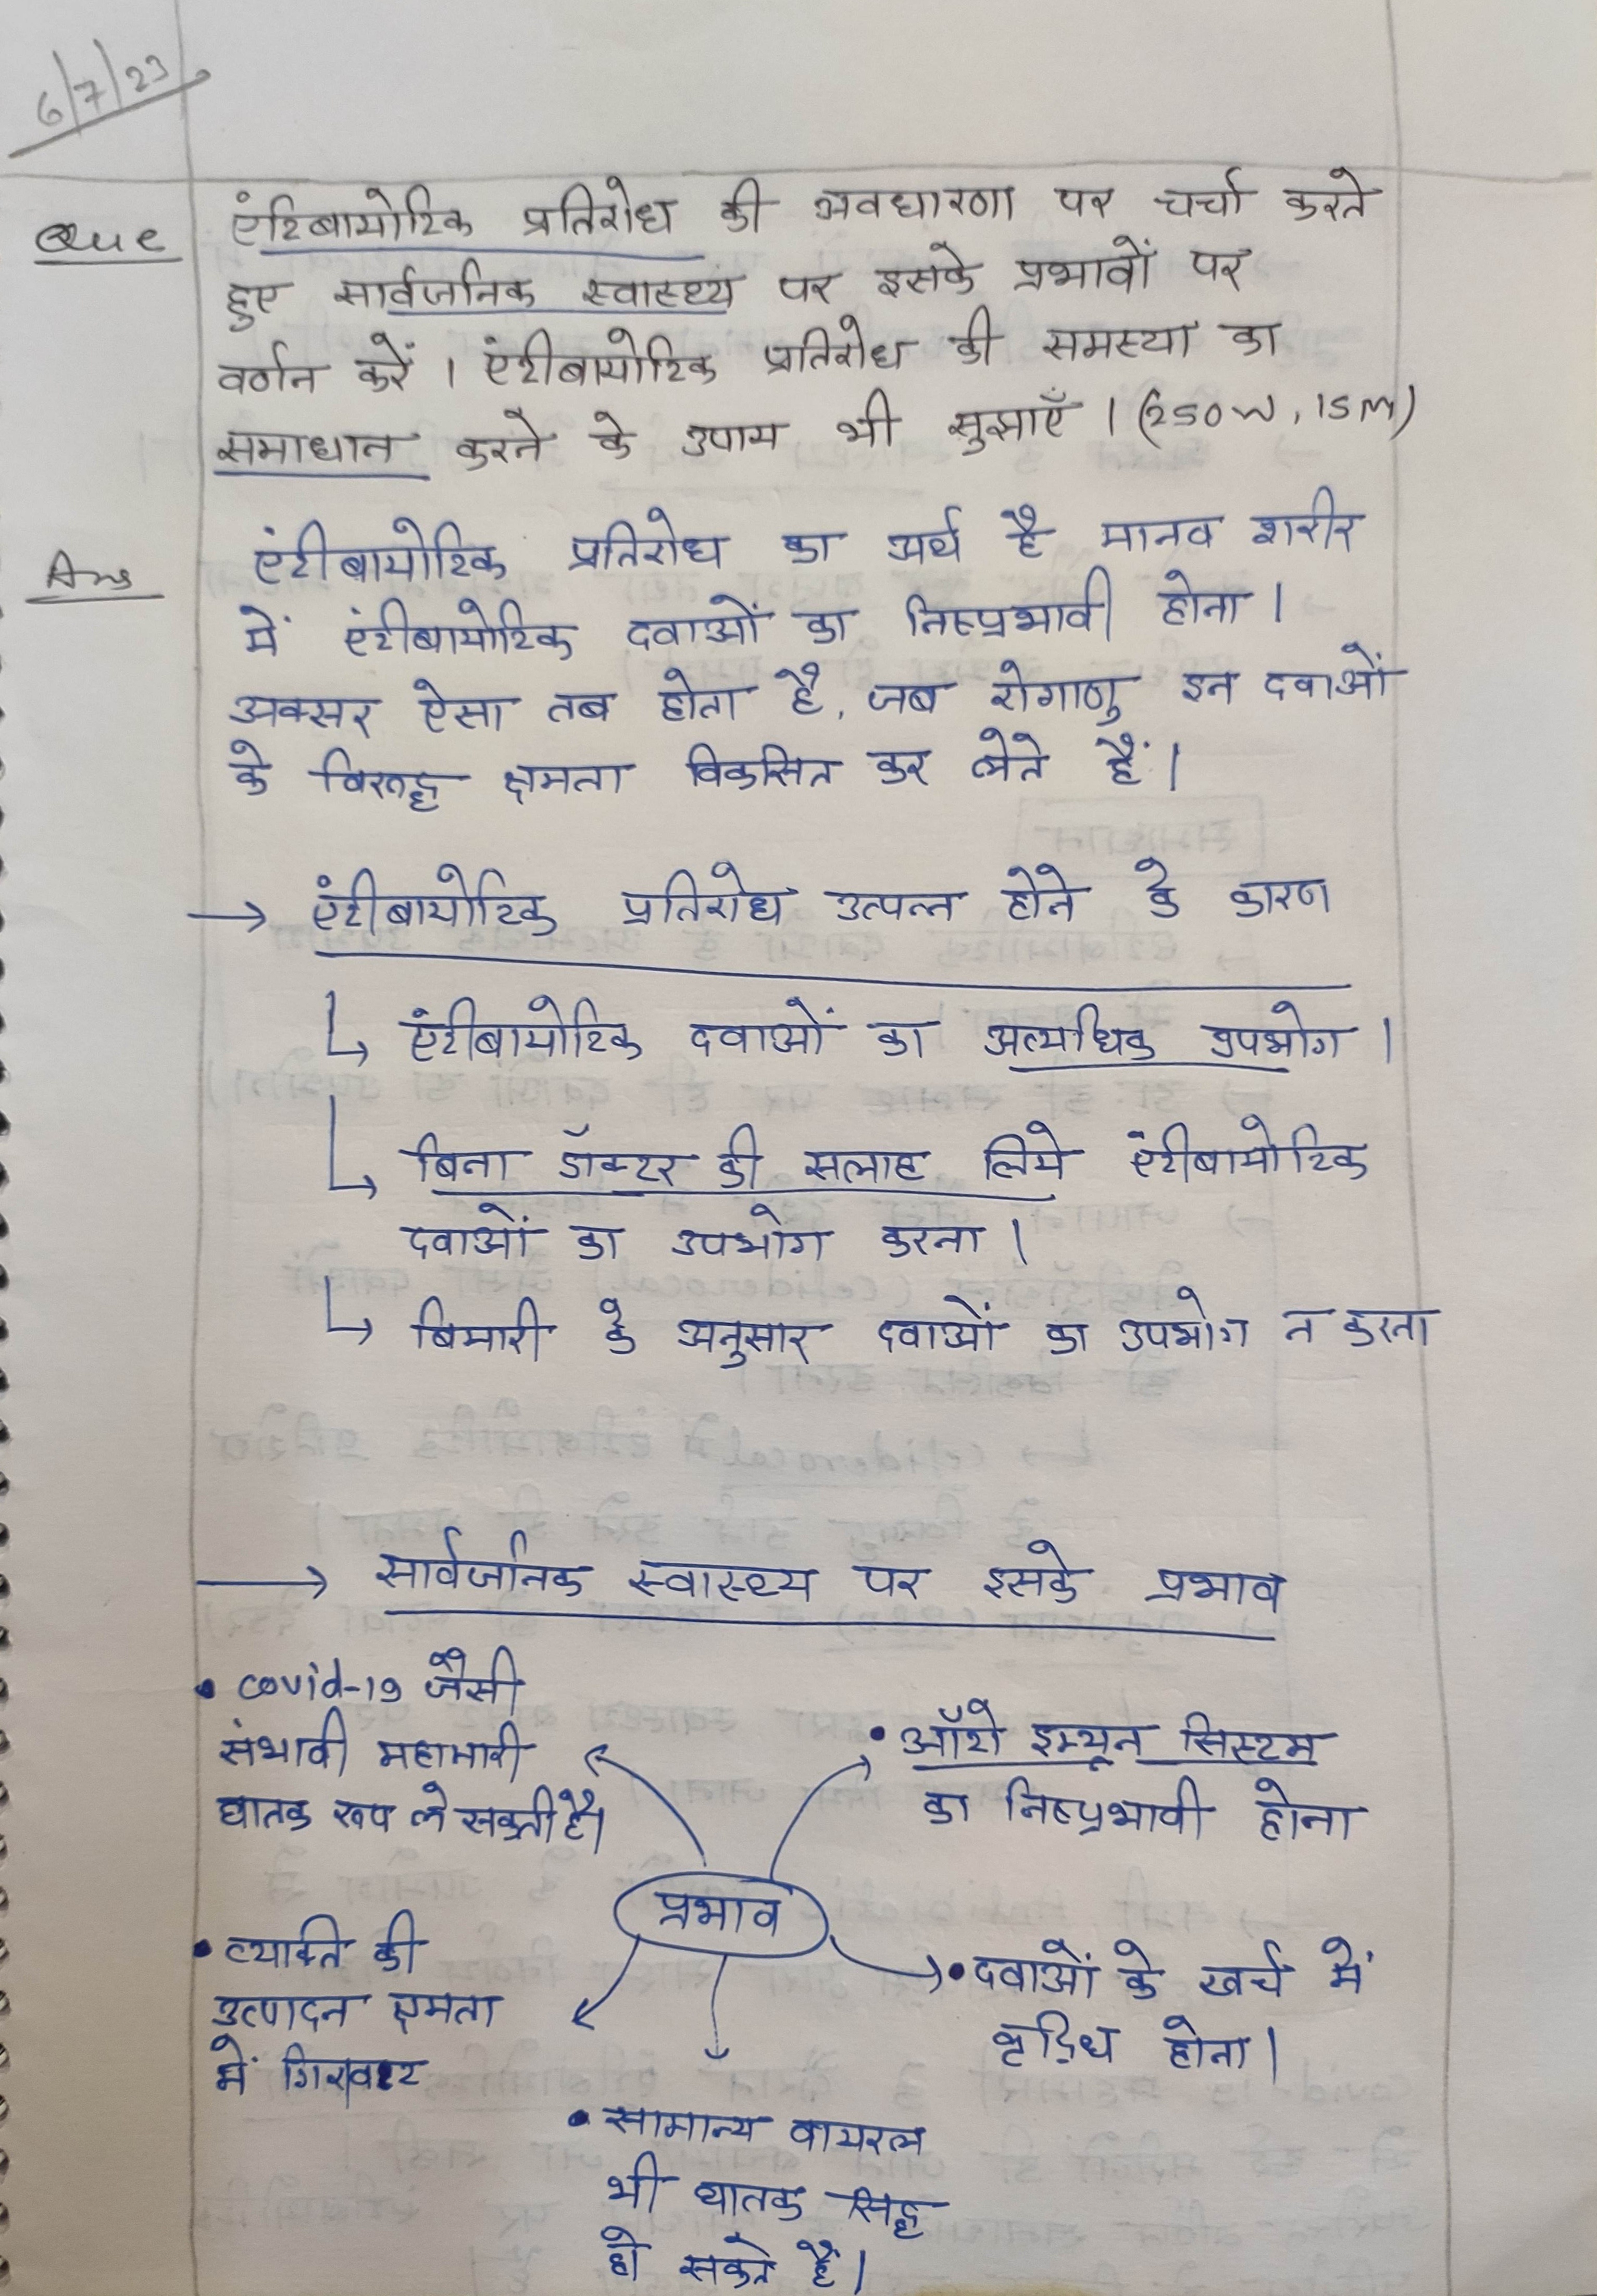 6/7/23
Que एंटिबायोटिक प्रतिरोध की अवधारणा पर चर्चा करते
हुए सार्वजनिक स्वास्थ्य पर इसके प्रभावों पर
वर्णन करें । एंटीबायोटिक प्रतिरोध की समस्या का
समाधान करने के उपाय भी सुझाएँ । (250 W, 15 M)
Ans एंटीबायोटिक प्रतिरोध का अर्थ है मानव शरीर
में एंटीबायोटिक दवाओं का निष्प्रभावी होना ।
अक्सर ऐसा तब होता है, जब रोगाणु इन दवाओं
के विरूद्ध क्षमता विकसित कर लेते हैं ।
→ एंटीबायोटिक प्रतिरोध उत्पन्न होने के कारण
↳ एंटीबायोटिक दवाओं का अत्यधिक उपभोग ।
↳ बिना डॉक्टर की सलाह लिये एंटीबायोटिक
दवाओं का उपभोग करना ।
↳ बिमारी के अनुसार दवाओं का उपभोग न करना
→ सार्वजनिक स्वास्थ्य पर इसके प्रभाव
• covid-19 जैसी
संभावी महामारी
घातक रूप ले सकती है।
• ऑटो इम्यून सिस्टम
का निष्प्रभावी होना
प्रभाव
• व्यक्ति की
उत्पादन क्षमता
में गिरावट
• दवाओं के खर्च में
वृद्धि होना ।
• सामान्य वायरल
भी घातक सिद्ध
हो सकते हैं ।